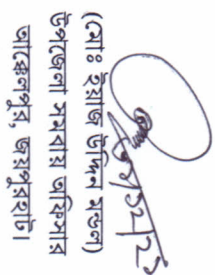 ০৭/১২/২৩
(মোঃ ইয়াজ উদ্দিন মন্ডল)
উপজেলা সমবায় অফিসার
আক্কেলপুর, জয়পুরহাট।